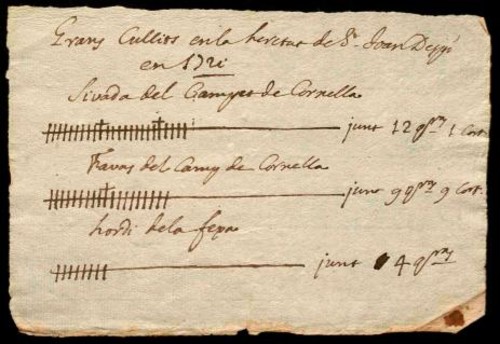 Grans Cullits en la heretat de Sr. Joan Despí
en 1721
Sivada del Camp de Cornella
junt 12 qras 1 Cort.
Favas del Camp de Cornella
junt 9 qras 9 Cort.
hordi de la fexa
junt 4 qras